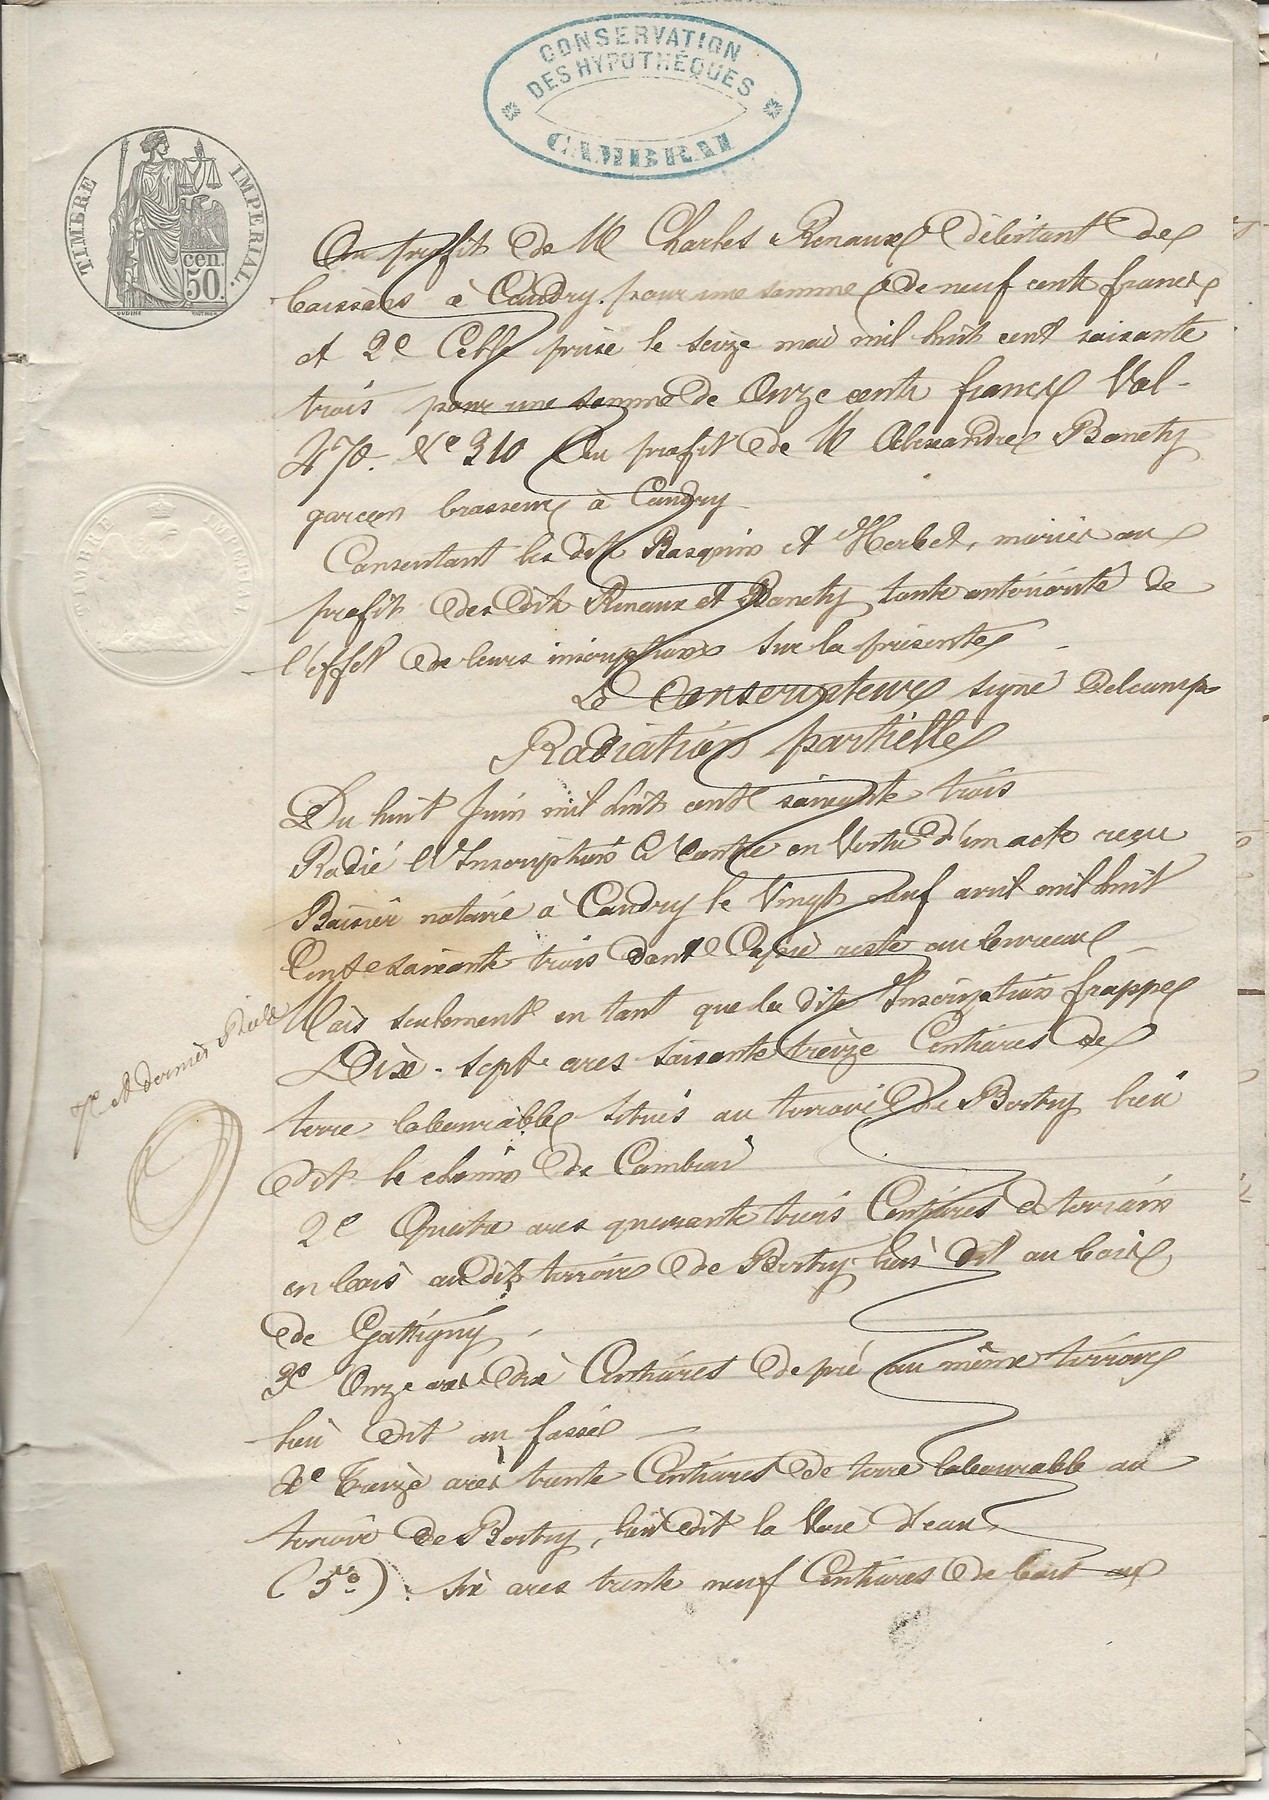 CONSERVATION
DES HYPOTHÉQUES
CAMBRAI
TIMBRE IMPERIAL.
50 cen.
TIMBRE IMPERIAL
Au profit de M Charles Renaux débitant de
boissons à Caudry. pour une somme de neuf cents francs
et 2e Celle prise le seize mai mil huit cent soixante
trois pour une somme de Onze cents francs Vol-
470. No 310 Au profit de M Alexandre Banchy
garçon brasseur à Caudry
Consentant les dits Basquin et Herbet, mariés au
profit des dits Renaux et Banchy toute antériorité de
l'effet de leurs inscriptions sur la présente
Le Conservateur signé Delcamp
Radiation partielle
Du huit Juin mil huit cent soixante trois
Radié l'Inscription Ci Contre en Vertu d'un acte reçu
notaire à Caudry le Vingt neuf avril mil huit
Cent soixante trois dont Copie reste au bureau
Mais seulement en tant que la dite Inscription frappe
Dix-sept ares soixante treize Centiares de
terre labourable situés au terroir de Bertry lieu
dit le chemin de Cambrai
2e Quatre ares quarante trois Centiares de terrain
en bois audit terroir de Bertry lieu dit au bois
de Gattigny
3e Onze ares dix Centiares de pré au même terroir
lieu dit au fossé
4e Treize ares trente Centiares de terre labourable au
terroir de Bertry, lieu dit la Voie d'eau
(5e) Six ares trente neuf Centiares de bois au
7e et dernier Rôle